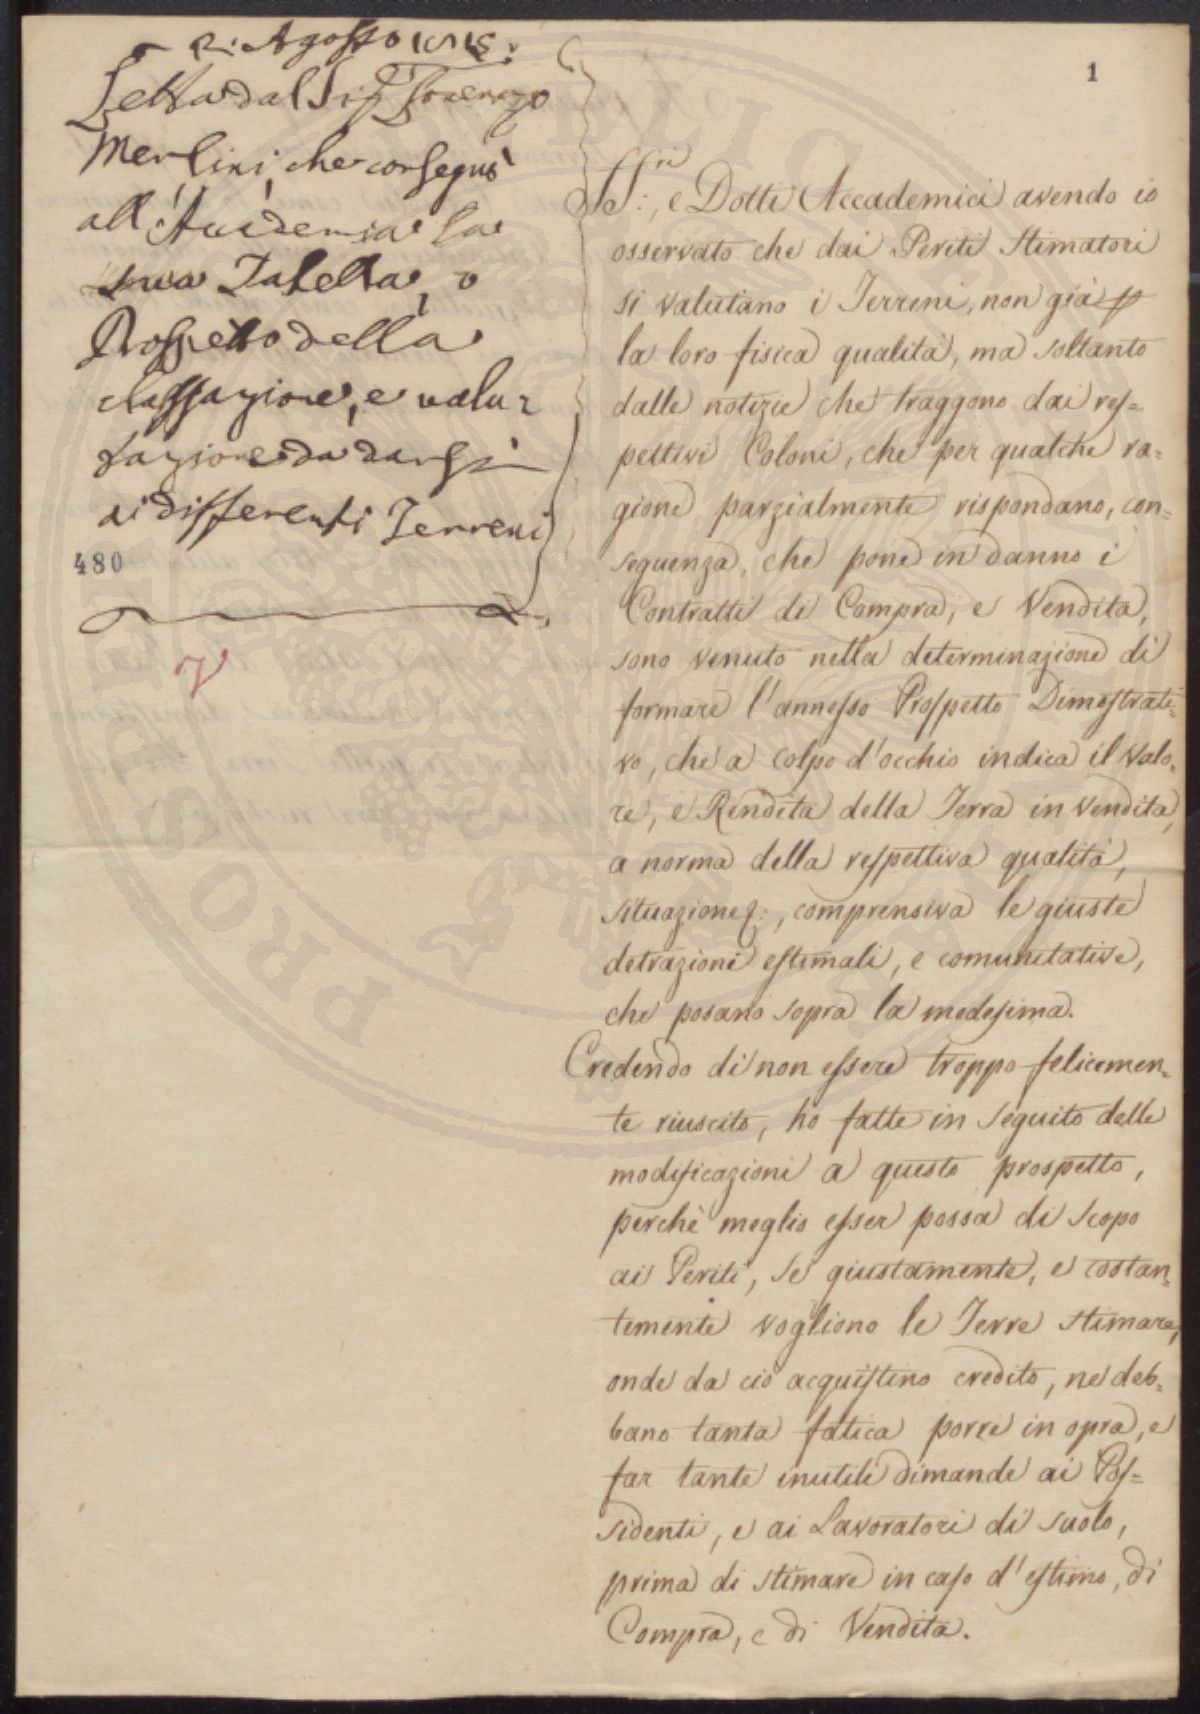 2. Agosto 1815.
Letta dal Sig. Lorenzo
Merlini, che consegnò
all'Accademia la
sua Tabella, o
Prospetto della
classazione, e valu-
tazione da darsi
ai differenti Terreni
480
V
1
SS:ri, e Dotti Accademici avendo io
osservato che dai Periti Stimatori
si valutano i Terreni, non già p
la loro fisica qualità, ma soltanto
dalle notizie che traggono dai res-
pettivi Coloni, che per qualche ra-
gione parzialmente rispondano, con-
seguenza, che pone in danno i
Contratti di Compra, e Vendita,
sono venuto nella determinazione di
formare l'annesso Prospetto Dimostrati-
vo, che a colpo d'occhio indica il Valo-
re, e Rendita della Terra in vendita,
a norma della respettiva qualità,
situazione &:, comprensiva le giuste
detrazioni estimali, e comunitative,
che posano sopra la medesima.
Credendo di non essere troppo felicemen-
te riuscito, ho fatte in seguito delle
modificazioni a questo prospetto,
perchè meglio esser possa di scopo
ai Periti, se giustamente, e costan-
temente vogliono le Terre stimare,
onde da ciò acquistino credito, ne deb-
bano tanta fatica porre in opra, e
far tante inutili dimande ai Pos-
sidenti, e ai Lavoratori di suolo,
prima di stimare in caso d'estimo, di
Compra, e di Vendita.
PUBLICA
PROSPE